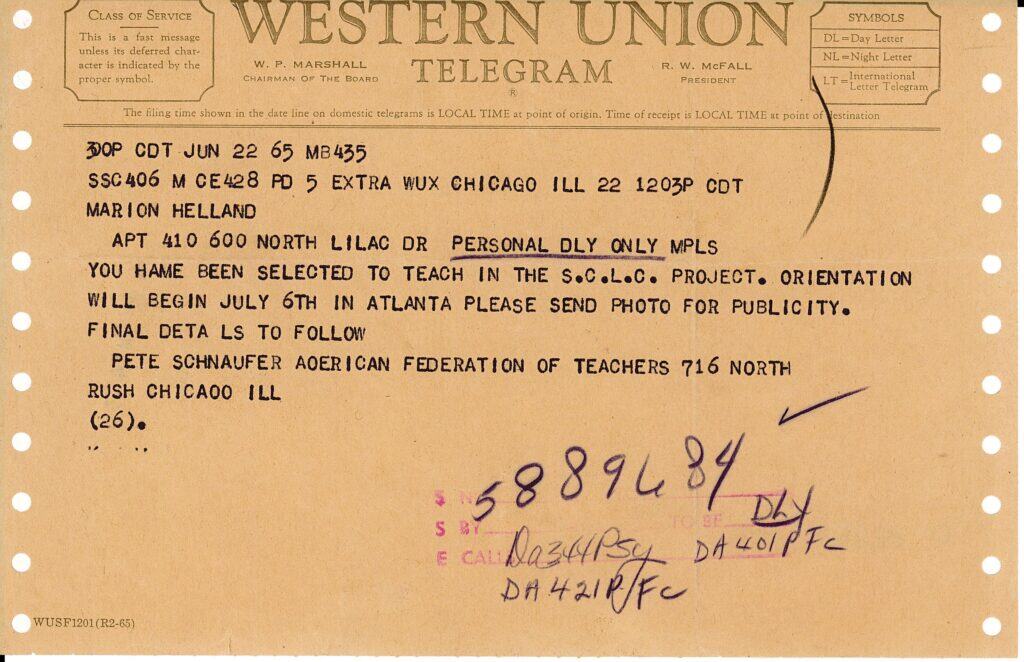 CLASS OF SERVICE
This is a fast message
unless its deferred char-
acter is indicated by the
proper symbol.
WESTERN UNION
TELEGRAM
®
W. P. MARSHALL
CHAIRMAN OF THE BOARD
R. W. McFALL
PRESIDENT
SYMBOLS
DL=Day Letter
NL=Night Letter
LT=International Letter Telegram
The filing time shown in the date line on domestic telegrams is LOCAL TIME at point of origin. Time of receipt is LOCAL TIME at point of destination
300P CDT JUN 22 65 MB435
SSC406 M CE428 PD 5 EXTRA WUX CHICAGO ILL 22 1203P CDT
MARION HELLAND
APT 410 600 NORTH LILAC DR PERSONAL DLY ONLY MPLS
YOU HAME BEEN SELECTED TO TEACH IN THE S.C.L.C. PROJECT. ORIENTATION
WILL BEGIN JULY 6TH IN ATLANTA PLEASE SEND PHOTO FOR PUBLICITY.
FINAL DETA LS TO FOLLOW
PETE SCHNAUFER AOERICAN FEDERATION OF TEACHERS 716 NORTH
RUSH CHICAOO ILL
(26).
5889684
S N
S BY TO BE DLY
E CALL Da344P DA401PFC
DA421P/FC
WUSF1201(R2-65)